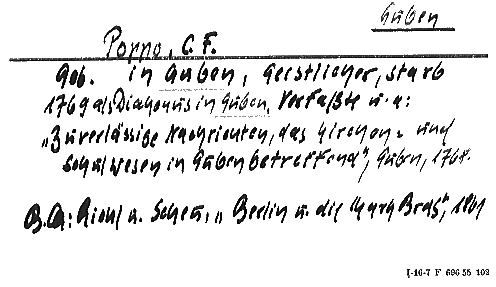 Guben
Poppo, C. F.
Geb. in Guben, Geistlicher, starb
1769 als Diakonus in Guben. Verfaßte u. a:
„Zuverlässige Nachrichten, das Kirchen- und
Schulwesen in Guben betreffend", Guben, 1768.
B. A: Riehl u. Scheu, „Berlin u. die Mark Brdg", 1861
I-16-7 F 696 55 109